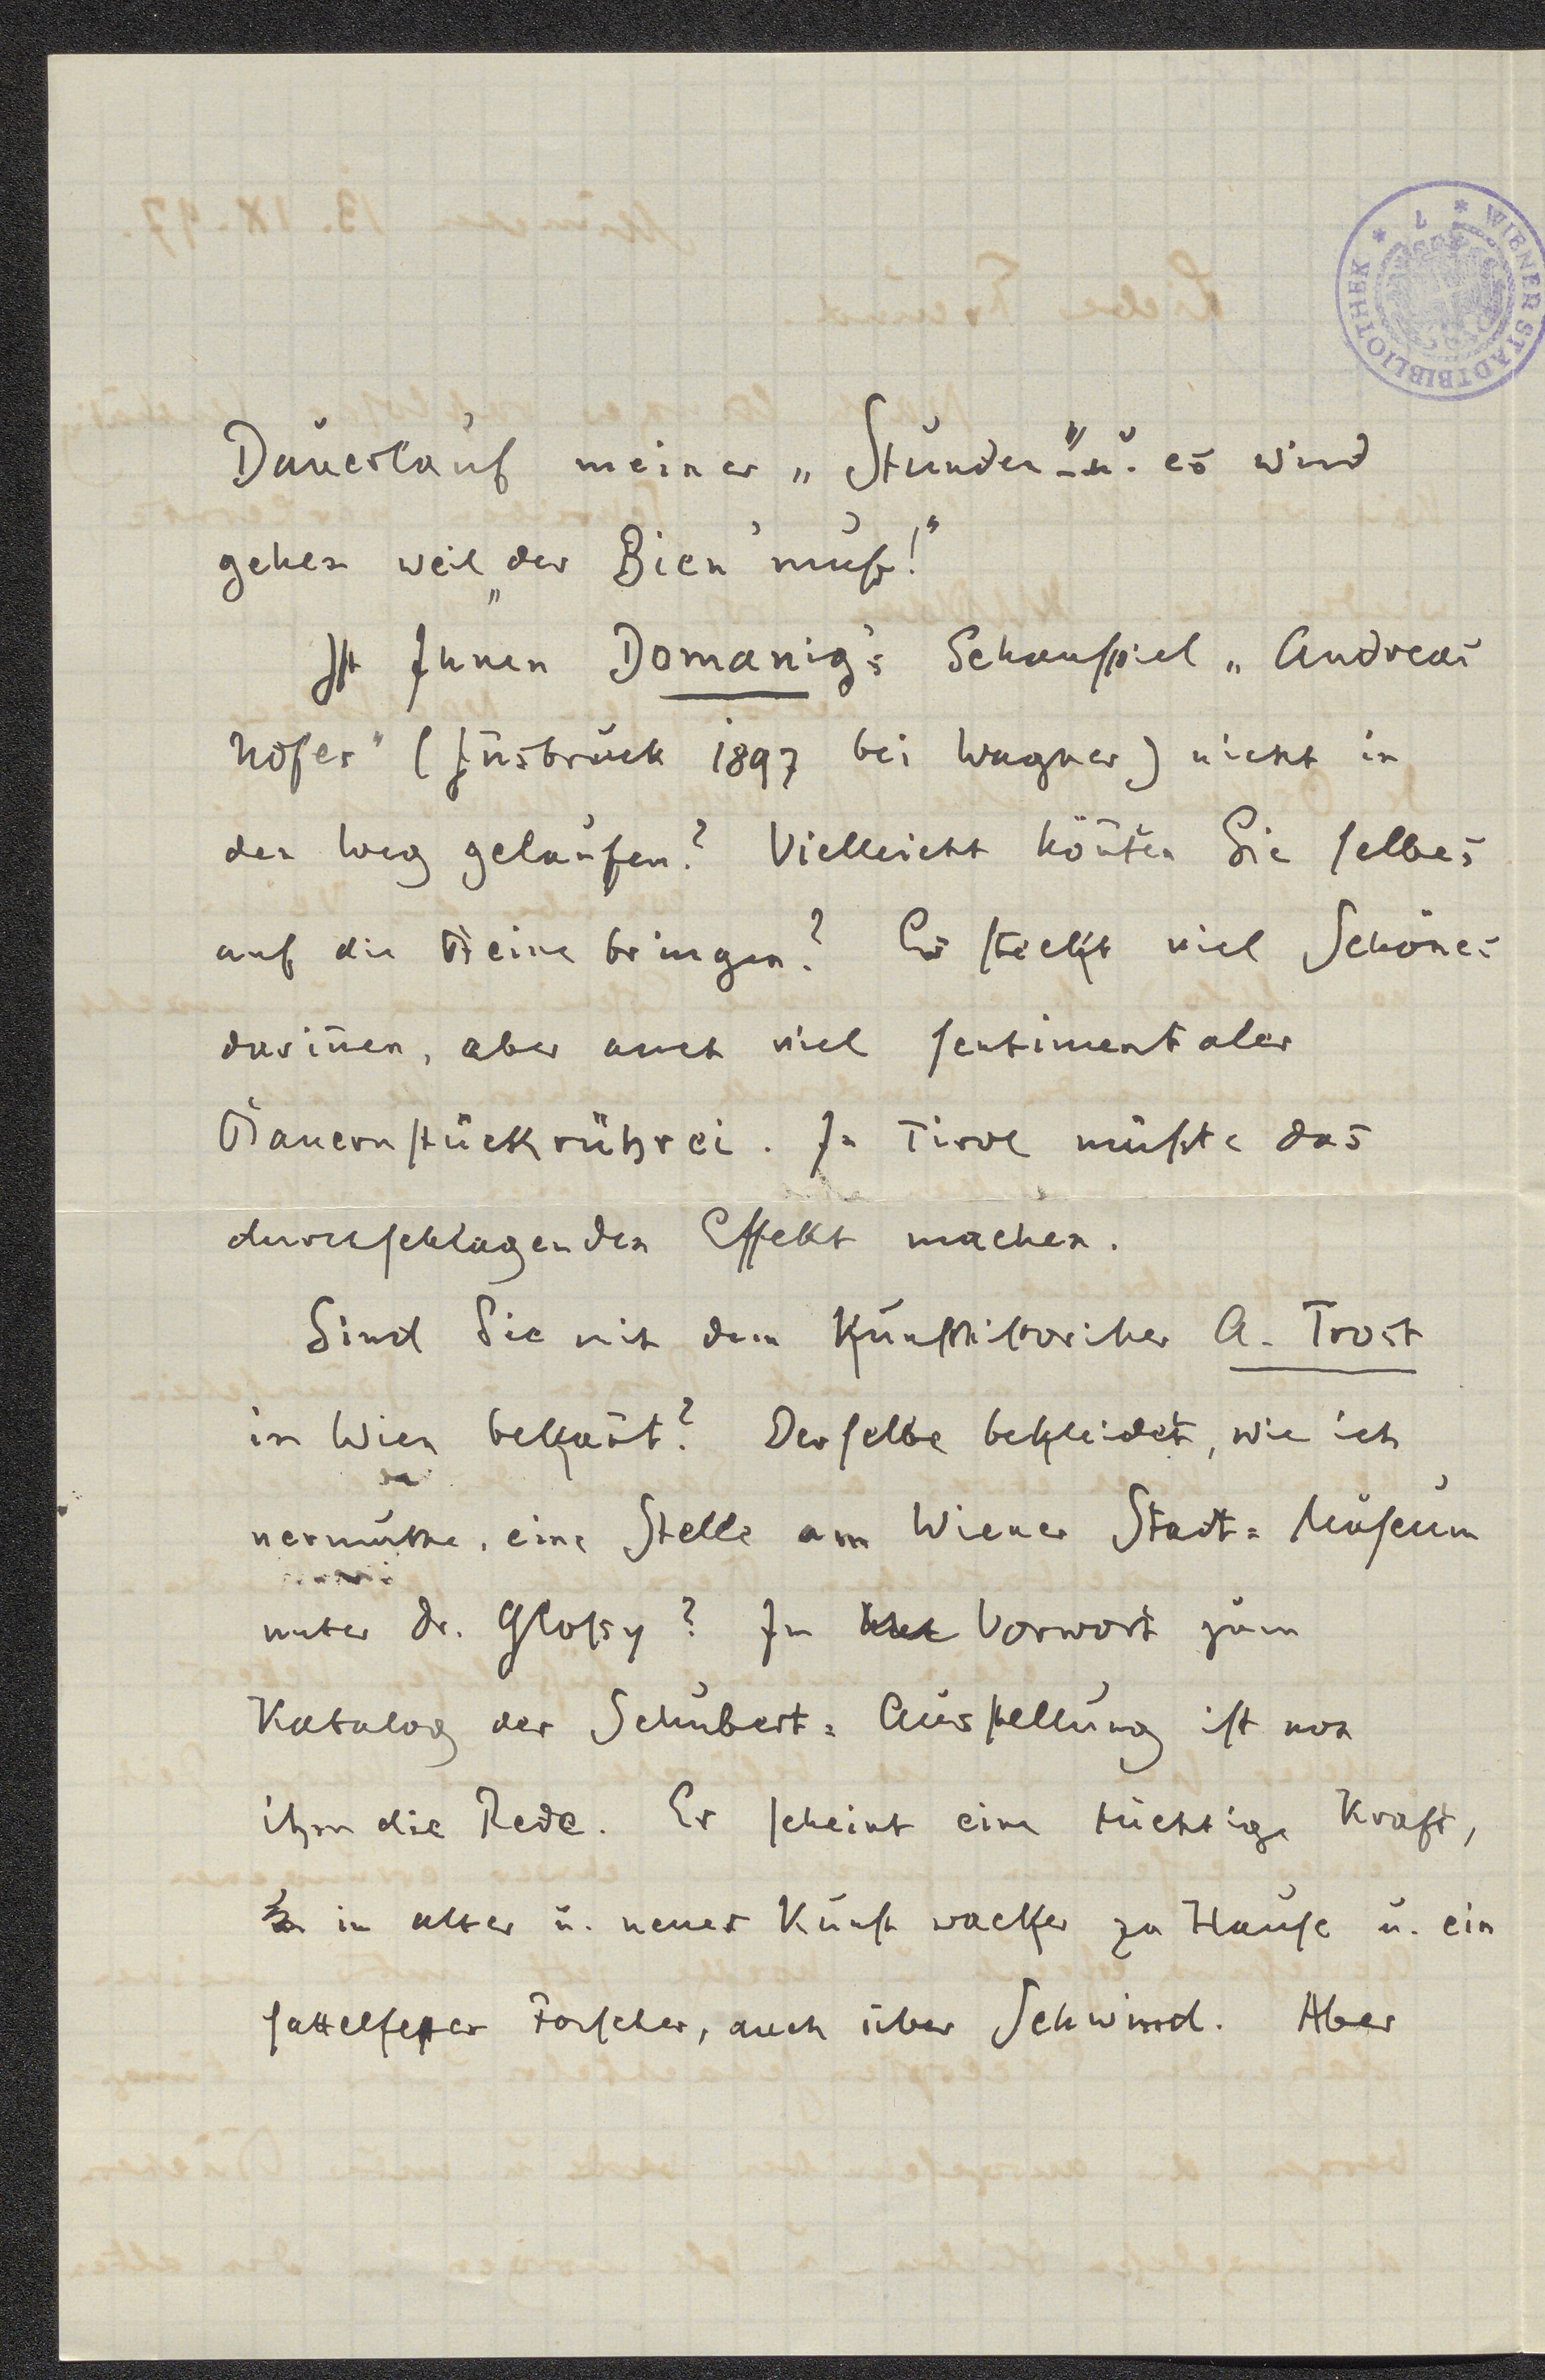 WIENER STADTBIBLIOTHEK
Dauerlauf meiner „Stunden“ – u. es wird
gehen weil „der Bien' muß!“
Ist Ihnen Domanig's Schauspiel „Andreas
Hofer“ (Insbruck 1897 bei Wagner) nicht in
den Weg gelaufen? Vielleicht kön̄ten Sie selbes
auf die Beine bringen? Es steckt viel Schönes
darin̄en, aber auch viel sentimentaler
Bauernstückrührei. In Tirol müßte das
durchschlagenden Effekt machen.
Sind Sie mit dem Kunsthistoriker A. Trost
in Wien bekan̄t? Derselbe bekleidet, wie ich
vermuthe, eine Stelle am Wiener Stadt=Museum
unter Dr. Gloßy? Im Vorwort zum
Katalog der Schubert=Ausstellung ist von
ihm die Rede. Er scheint eine tüchtige Kraft,
in alter u. neuer Kunst wacker zu Hause u. ein
sattelfester Forscher, auch über Schwind. Aber